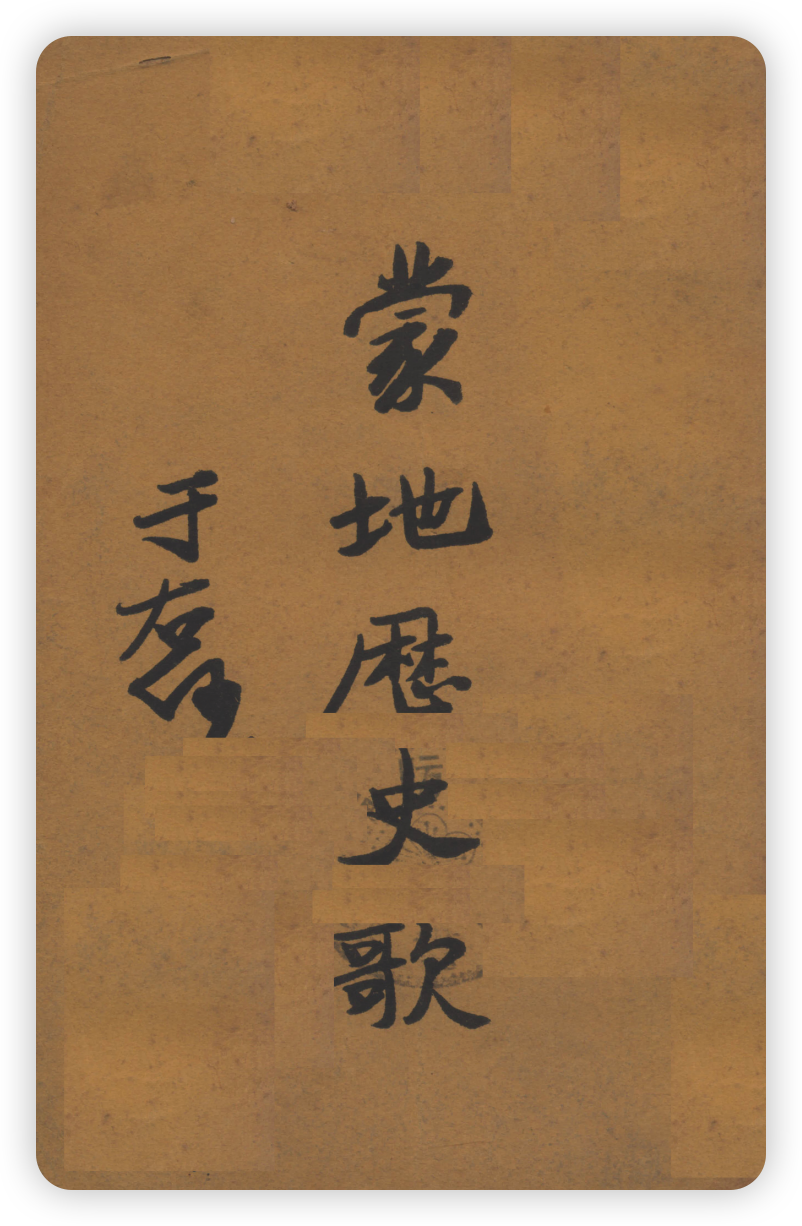 蒙地歷史歌
于右